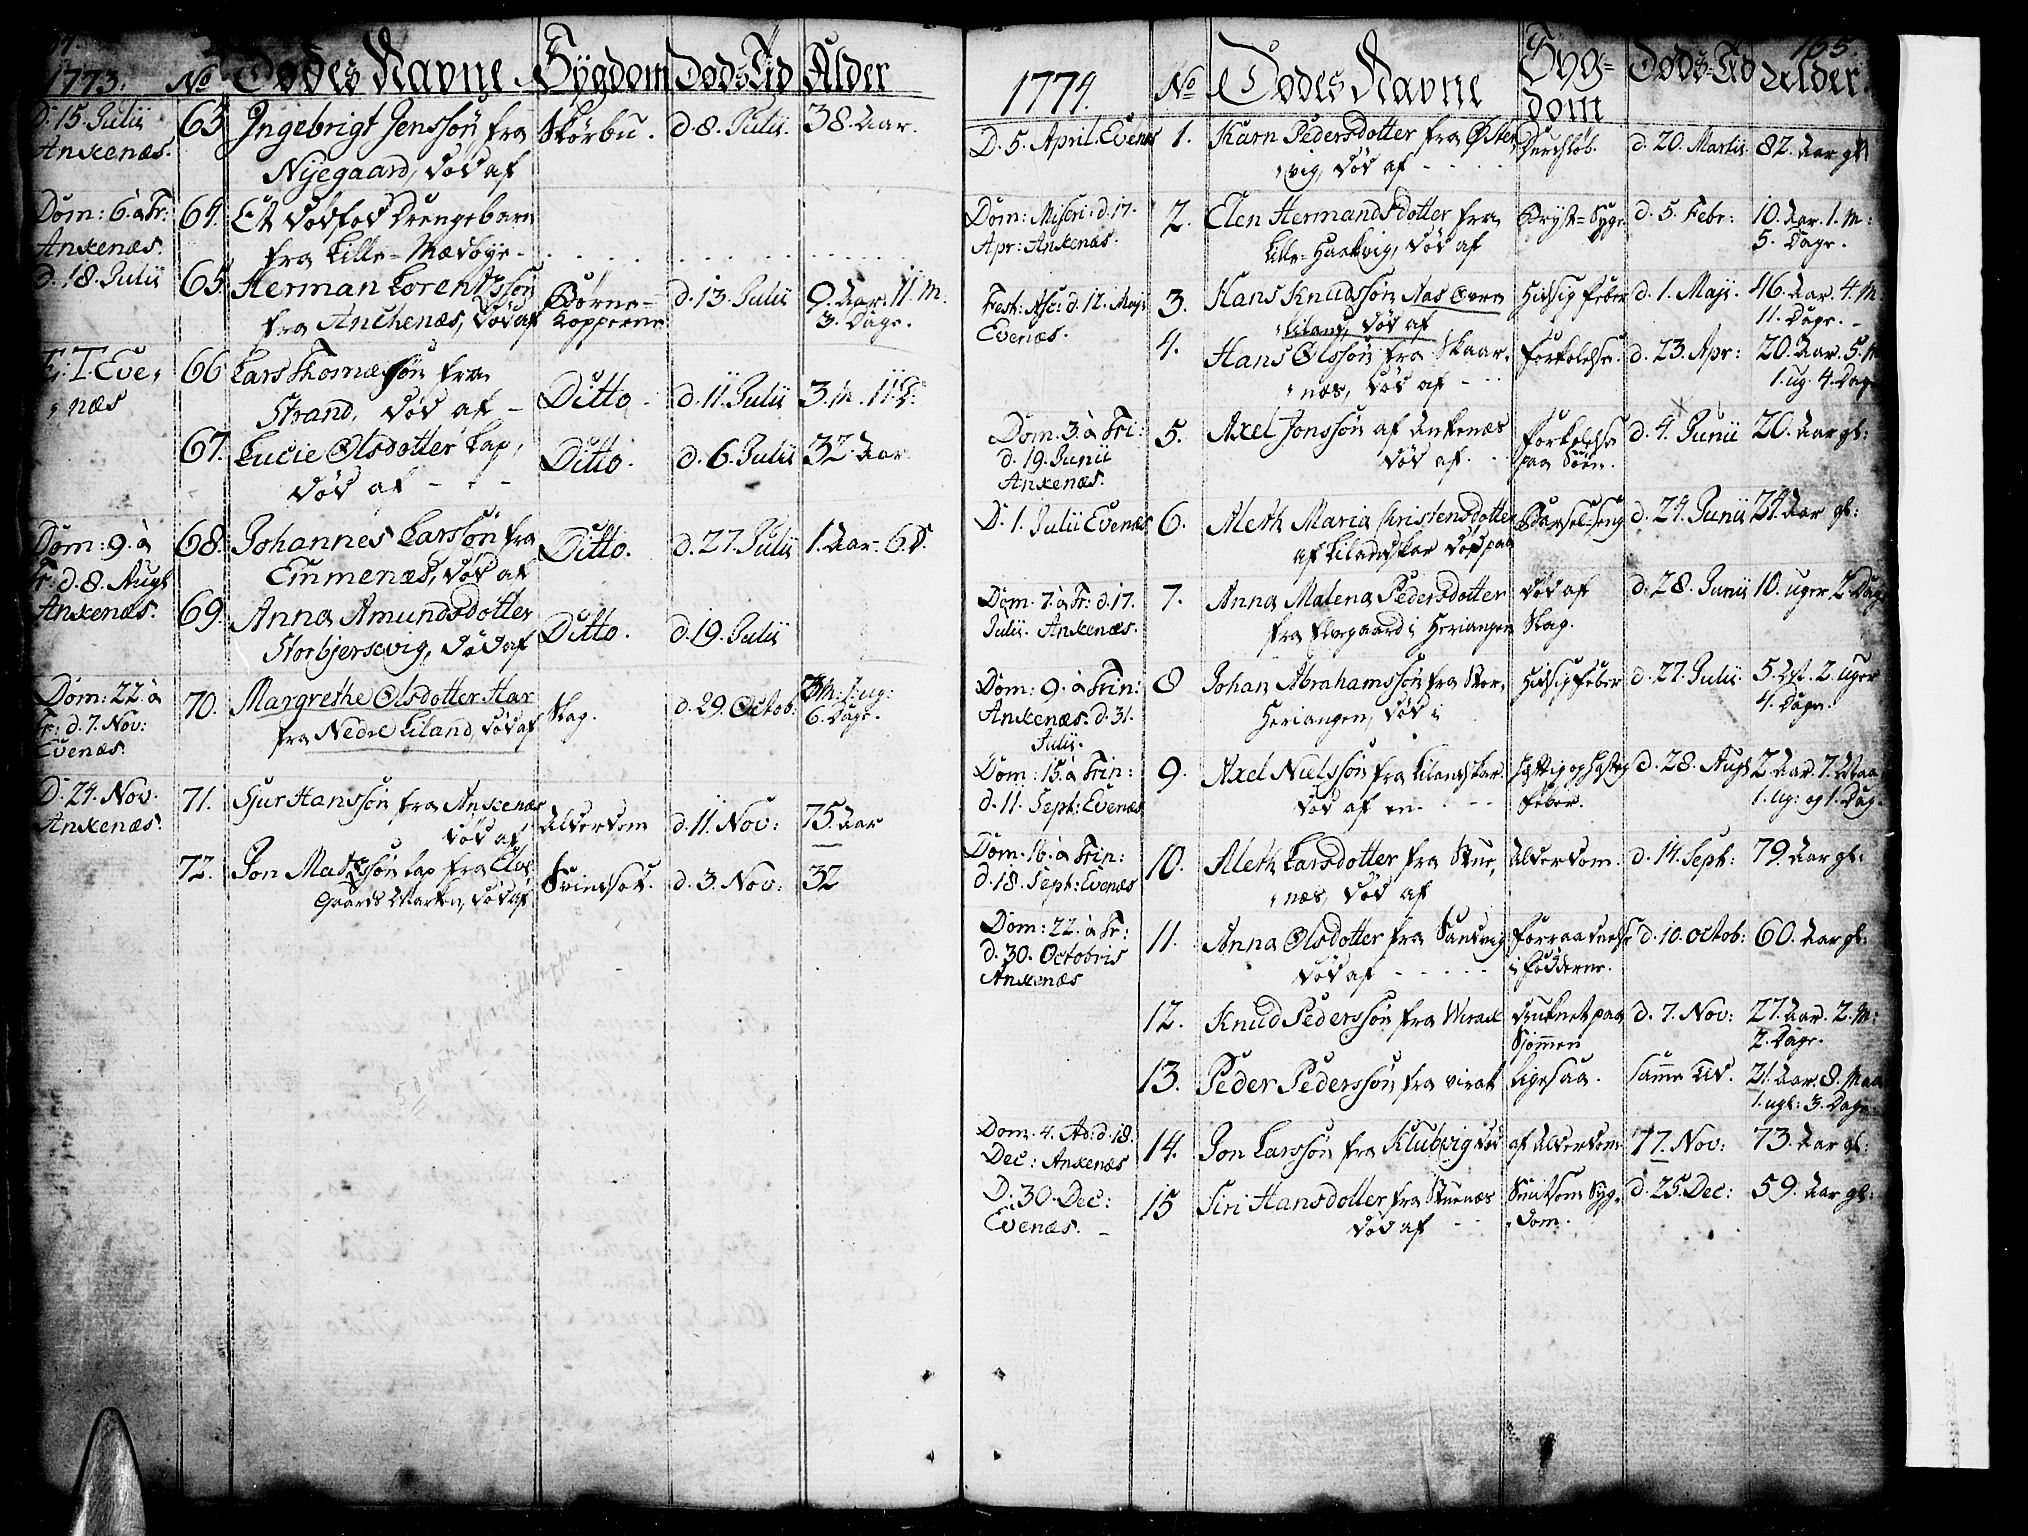 1773. No Dødes Navne Sygdom Døds Tid Alder
D. 15. Julii 63 Ingebrigt Jenssøn fra Skørbu. d. 8. Julii. 38. Aar.
Anxenæs. Nyegaard, død af
Dom: 6. à Tr: 64. Et dødfød Drengebarn
Anxenæs. fra Lille-Mædbye.
d. 18. Julii 65. Herman Lorentzsøn Børne- d. 13. Julii 9. Aar. 11. M.
fra Anchenæs, død af Kopperne 3. Dage.
Eve, 66 Lars Thomesøn fra
næs Strand, død af Ditto. d. 11. Julii 3. M. 11. D.
67. Lucie Olsdotter Lap, Ditto. d. 6. Julii 32. Aar
død af
Dom: 9. à 68. Johannes Larssøn fra Ditto. d. 27. Julii 1. Aar. 6. D.
Tr: d. 8. Augs Emmenæs, død af
Anxenæs. 69. Anna Amundsdotter Ditto. d. 19. Julii
Storbjersvig, død af
Dom: 22. à 70. Margrethe Olsdotter Har Slag. d. 29. Octob: 3 M: 1. ug:
Tr: d. 7. Nov: fra Nedre Liland, død af 6. Dage.
Evenæs.
D. 24. Nov. 71. Sjur Hanssøn fra Anxenæs Alderdom d. 11. Nov: 75. Aar
Anxenæs. død af
72. Jon Madssøn Lap fra Elve Svindsot. d. 3. Nov: 32
Gaards Marken, død af
165.
1774. No Dødes Navne Syg= Døds-Tid Alder.
dom
D. 5. April. Evenæs 1. Karn Pedersdotter fra Øster Durchløb. d. 20. Martii 82. Aar gl
vig, død af
Dom: Miseri. d. 17. 2. Elen Hermandsdotter fra Bryst-Syge d. 5. Febr: 10. Aar. 1. M:
Apr: Anxenæs. Lille-Haakvig, død af 5. Dage.
Fest: Asc: d. 12. Maji 3. Hans Knudssøn Næs Øvre Hidsig feber d. 1. Maji. 46. Aar. 4. M.
Evenæs. Liland, død af 11. Dage.
4. Hans Olssøn fra Skaar, Forkølelse. d. 23. Apr: 20. Aar. 5. M
næs, død af 1. ug. 4. Dage
Dom. 3. à Tri: 5. Axel Jonssøn af Ankenæs Forkølelse d. 4. Junii 20. Aar gl:
d. 19. Junii død af. paa Søen.
Anxenæs.
D. 1. Julii Evenæs 6. Aleth Maria Christensdotter Barsel-seng d. 24. Junii 24 Aar gl:
af Lilandskar død paa
Dom. 7. à Tr: d. 17. 7. Anna Malena Pedersdotter død af d. 28. Junii 10. uger 2. Dage
Julii. Anxenæs. fra Elvegaard i Heriangen Slag.
Dom: 9. à Trin: 8 Johan Abrahamssøn fra Stor- Hidsig feber d. 27. Julii 5. 2. uger
Anxenæs. d. 31. Heriangen, død i 4. Dage.
Julii.
Dom: 15. à Trin: 9. Axel Nielssøn fra Lilandskar. Hæftig og hastig d. 28. Augs 2. Aar. 7. Maa
d. 11. Sept: Evenæs død af en feber. 1. Ug: og 1. Dag.
Dom. 16. à Trin: 10. Aleth Larsdotter fra Stue, Alderdom. d. 14. Sept: 79. Aar gl:
d. 18. Sept: Evenæs næs, død af
Dom: 22. à Tr: 11. Anna Olsdotter fra Sandvig Forraadnelse d. 10. Octob: 60. Aar gl:
d. 30. Octobris død af i Fødderne.
Anxenæs
12. Knud Pederssøn fra Wirak druknet paa d. 7. Nov: 27. Aar. 2. M:
Sjømmen 2. Dage.
13. Peder Pederssøn fra Virak ligesaa. samme tid. 21. Aar. 8. Maa
1. ugl: 3. Dage.
Dom. 4. Ad: d. 18. 14. Jon Larssøn fra Klubvig død af Alderdom 77. Nov: 73. Aar gl:
Dec: Anxenæs
D. 30. Dec: 15 Siri Hansdotter fra Stuenæs Smitsom Syg, d. 25. Dec: 59. Aar gl:
Evenæs. død af dom.